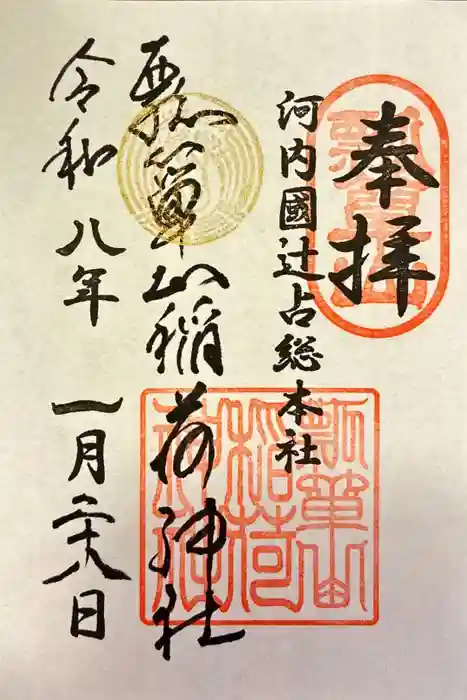 奉拝
瓢箪山
河内國辻占総本社
瓢箪山稲荷神社
瓢箪山
稲荷
神社
令和八年一月二十八日